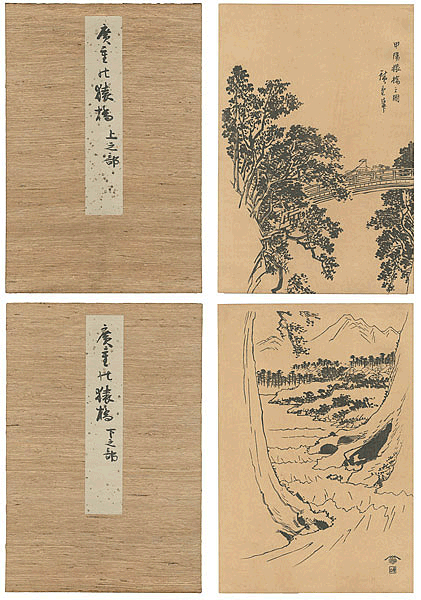 廣重の猿橋 上之部
甲陽猿橋之圖
廣重筆
廣重の猿橋 下之部